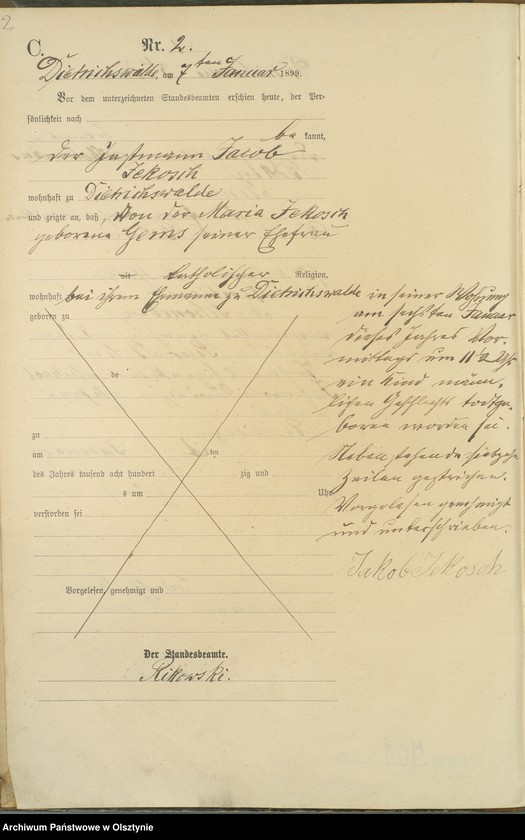 2
C.
Nr. 2.
Dietrichswalde, am 7ten Januar 1899.
Vor dem unterzeichneten Standesbeamten erschien heute, der Per-
sönlichkeit nach
be kannt,
der Instmann Jacob
Jekosch
wohnhaft zu Dietrichswalde
und zeigte an, daß von der Maria Jekosch
geborene Gems seiner Ehefrau
alt katholischer Religion,
wohnhaft bei ihrem Ehemanne zu Dietrichswalde in seiner Wohnung
geboren zu
am sechsten Januar
dieses Jahres Vor-
mittags um 11½ Uhr
ein Kind männ-
lichen Geschlechts todtge-
boren worden sei.
Nebenstehende siebzehn
Zeilen gestrichen.
Vorgelesen genehmigt
und unterschrieben.
Jakob Jekosch
de
zu
am ten
des Jahres tausend acht hundert zig und
s um Uhr
verstorben sei
Vorgelesen, genehmigt und
Der Standesbeamte.
Rikowski.
Archiwum Państwowe w Olsztynie